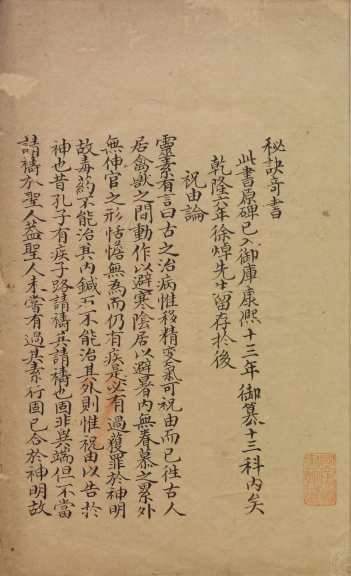 秘訣奇書
此書原碑已入御庫康熙十三年 御纂十三科內矣
乾隆六年徐焯先生留存於後
祝由論
靈素有言曰古之治病惟移精变氣可祝由而已往古人
居禽獸之間動作以避寒陰居以避暑內無眷慕之累外
無伸官之形恬憺無為而仍有疾是必有過獲罪於神明
故毒葯不能治其內鍼石不能治其外則惟祝由以告於
神也昔孔子有疾子路請禱其請禱也固非異端但不當
請禱於聖人蓋聖人未嘗有過其素行固已合於神明故